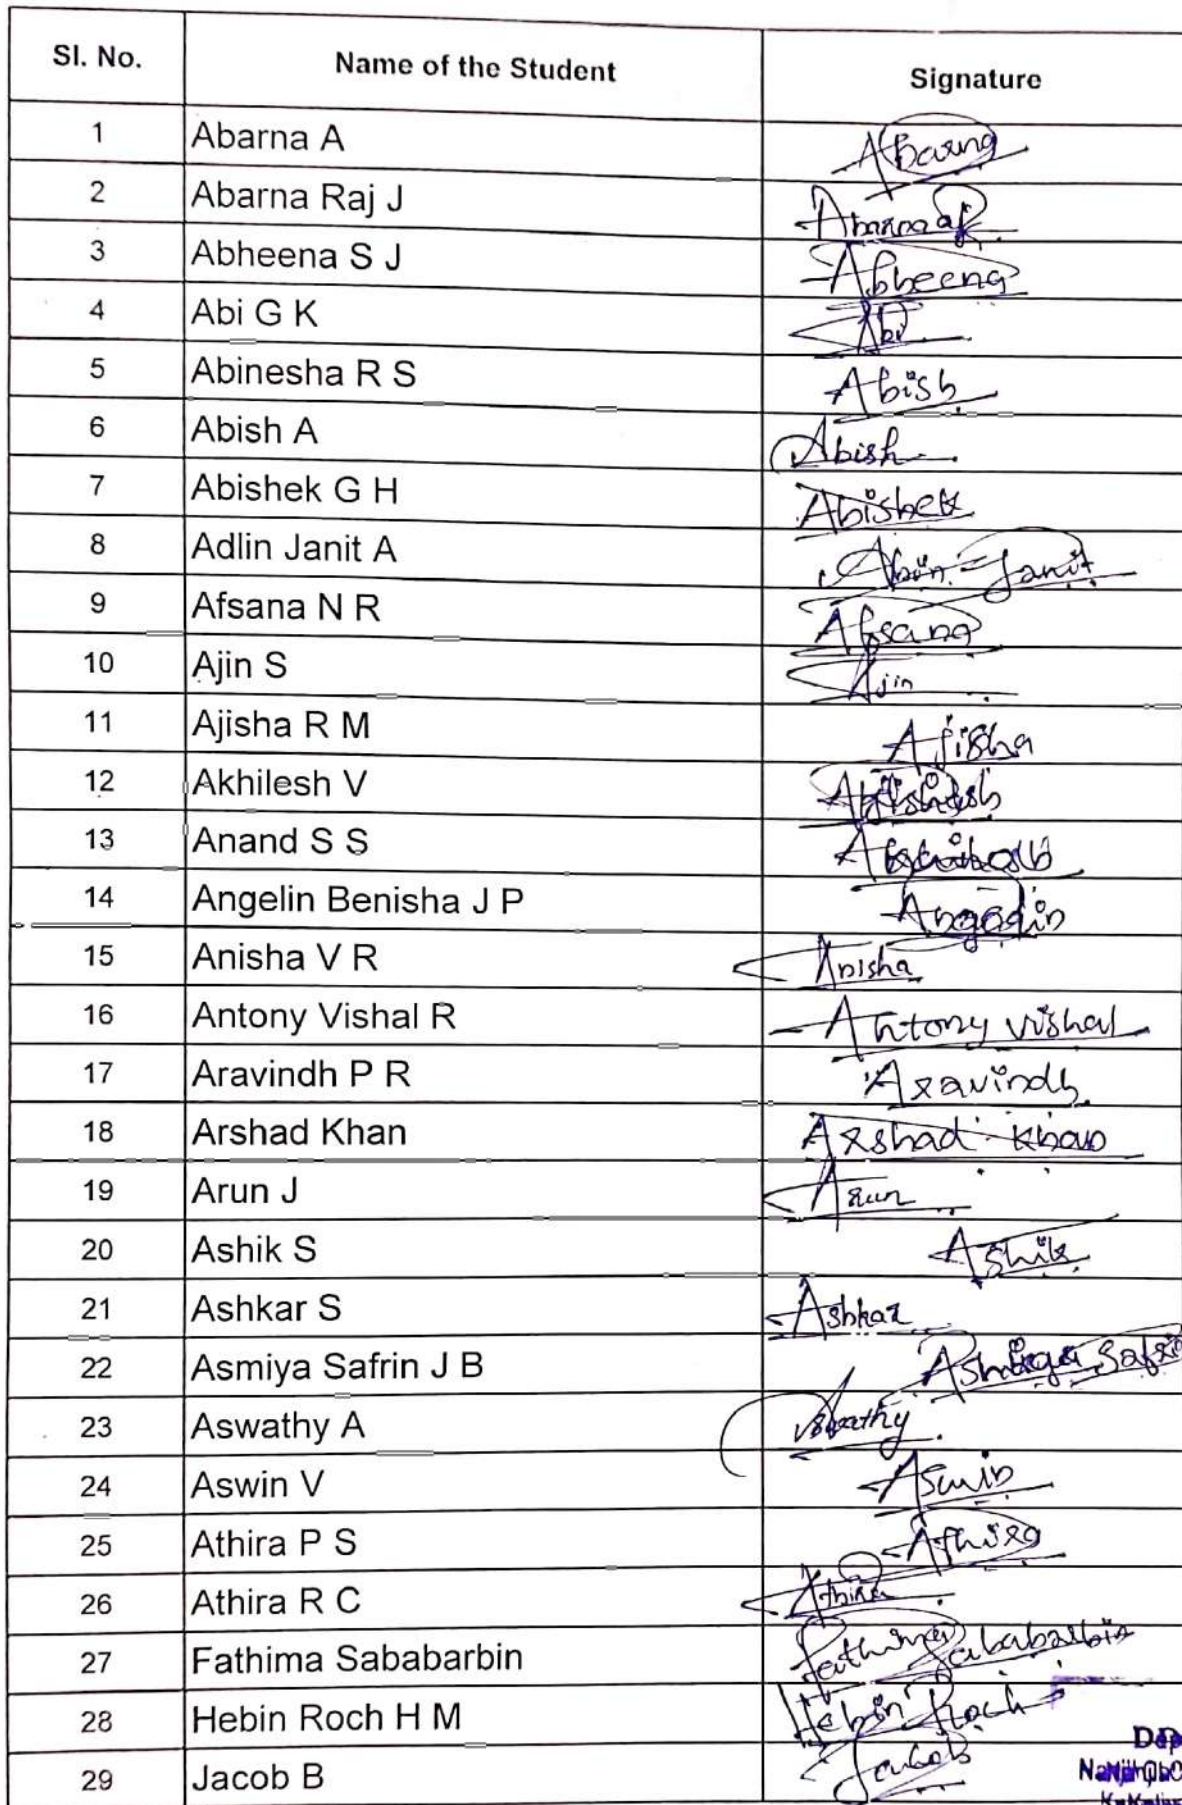 Sl. No. Name of the Student Signature
1 Abarna A Abarna
2 Abarna Raj J
3 Abheena S J Abheena
4 Abi G K Abi
5 Abinesha R S Abish
6 Abish A Abish
7 Abishek G H Abishek
8 Adlin Janit A Janit
9 Afsana N R Afsana
10 Ajin S Ajin
11 Ajisha R M Ajisha
12 Akhilesh V
13 Anand S S
14 Angelin Benisha J P
15 Anisha V R Anisha
16 Antony Vishal R Antony Vishal
17 Aravindh P R Aravindh
18 Arshad Khan Arshad Khan
19 Arun J Arun
20 Ashik S Ashik
21 Ashkar S Ashkar
22 Asmiya Safrin J B
23 Aswathy A
24 Aswin V Aswin
25 Athira P S Athira
26 Athira R C Athira
27 Fathima Sababarbin Fathima Sababarbin
28 Hebin Roch H M Hebin Roch
29 Jacob B Jacob